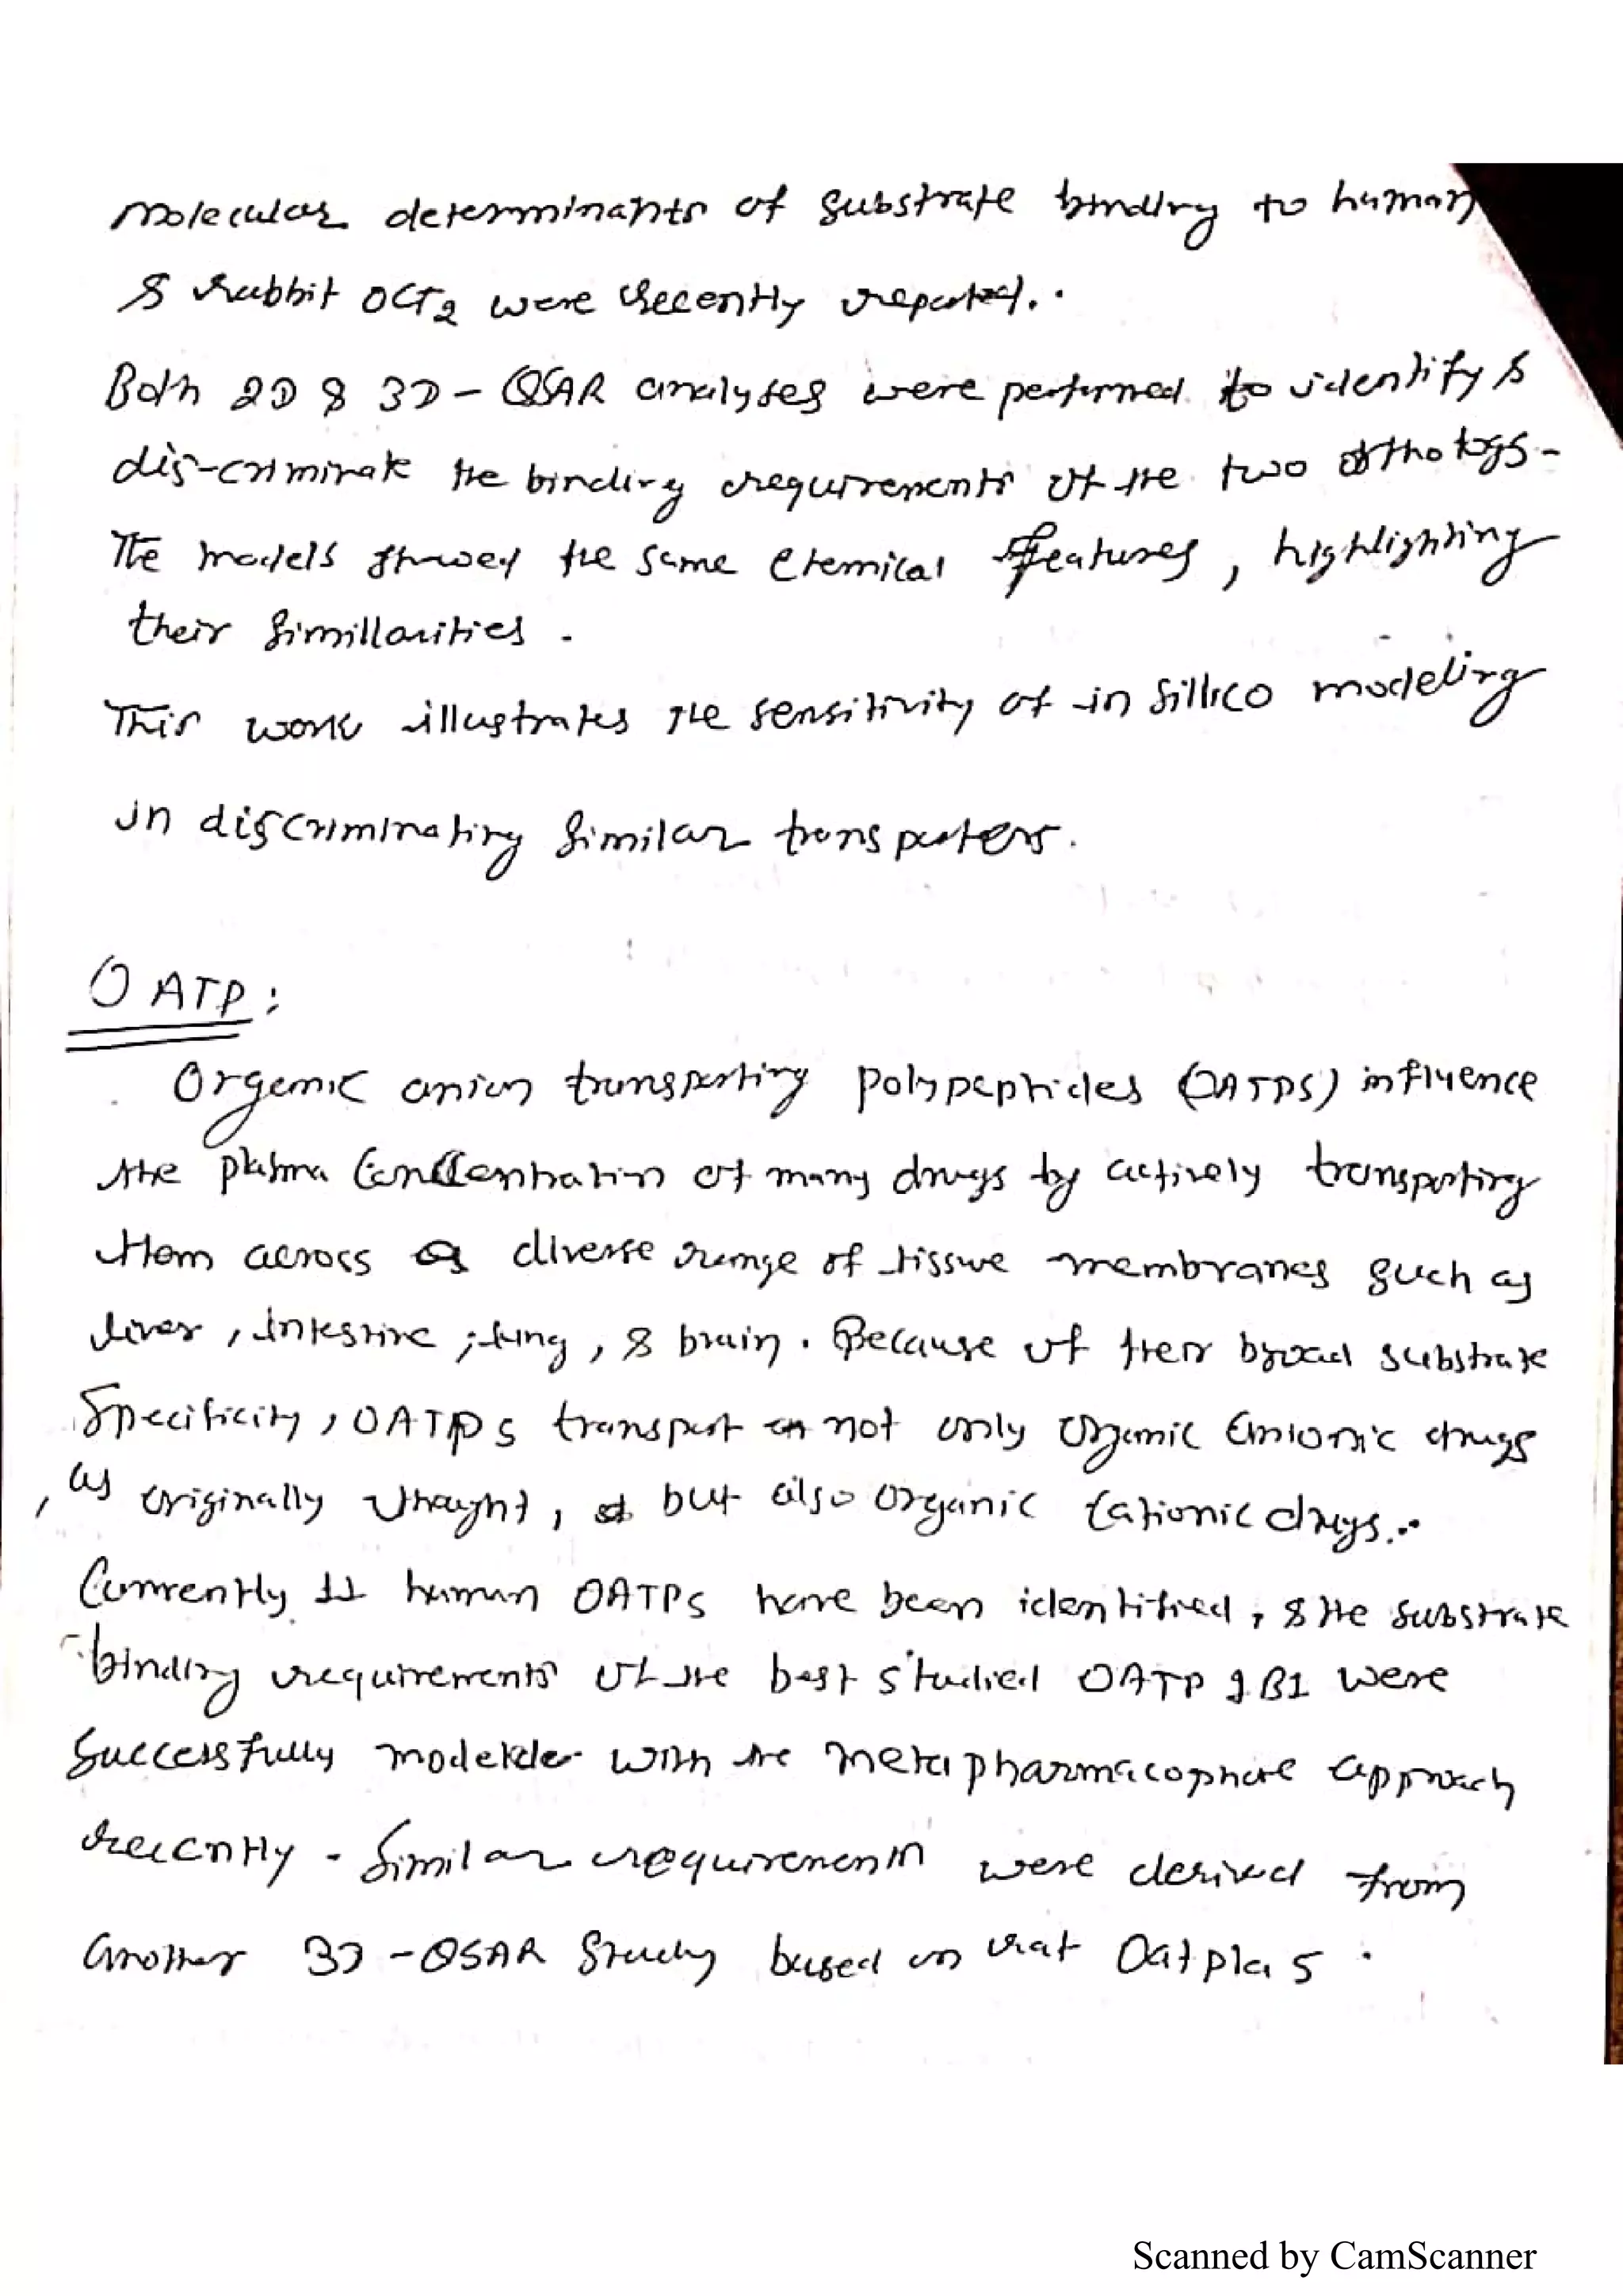 Molecular determinants of substrate binding to human
& rabbit OCT2 were recently reported.
Both 2D & 3D - QSAR analyses were performed to identify &
dis-criminate the binding requirements of the two orthologs -
The models showed the same chemical features, highlighting
their simillarities .
This work illustrates the sensitivity of in sillico modeling
in discriminating similar transporters.
OATP :
Organic anion transporting polypeptides (OATPS) influence
the plasma concentration of many drugs by actively transporting
them across a diverse range of tissue membranes such as
liver, intestine, lung, & brain. Because of their broad substrate
specificity, OATPs transport not only organic anionic drugs
, as originally thought, but also organic cationic drugs.
Currently 11 human OATPs have been identified, & the substrate
binding requirements of the best studied OATP 1B1 were
successfully modeled with the meta pharmacophore approach
recently - Similar requirements were derived from
another 3D - QSAR study based on rat Oatp1a5 .
Scanned by CamScanner